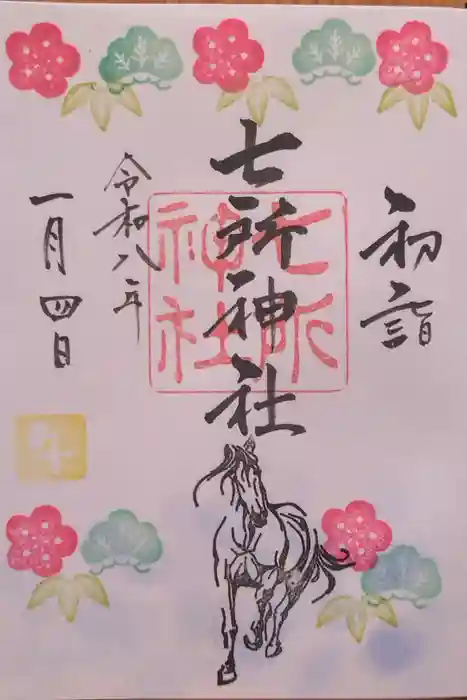 初詣
七所神社
七所神社
令和八年
一月四日